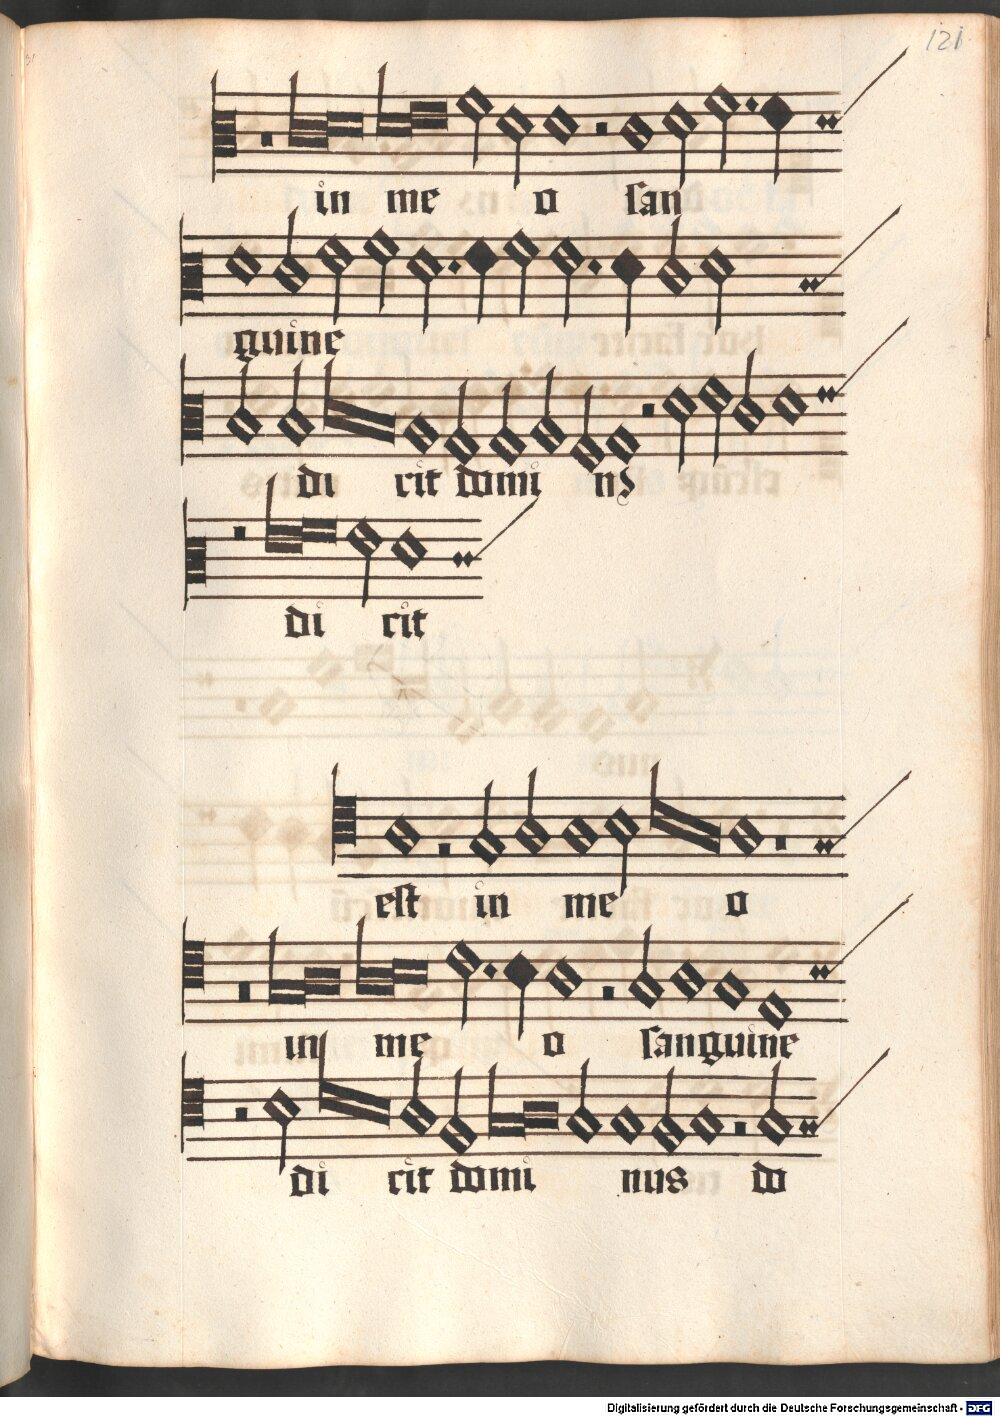 121
in me o san
guine
di cit domi nꝰ
di cit
est in me o
in me o sanguine
di cit domi nus do
Digitalisierung gefördert durch die Deutsche Forschungsgemeinschaft - DFG